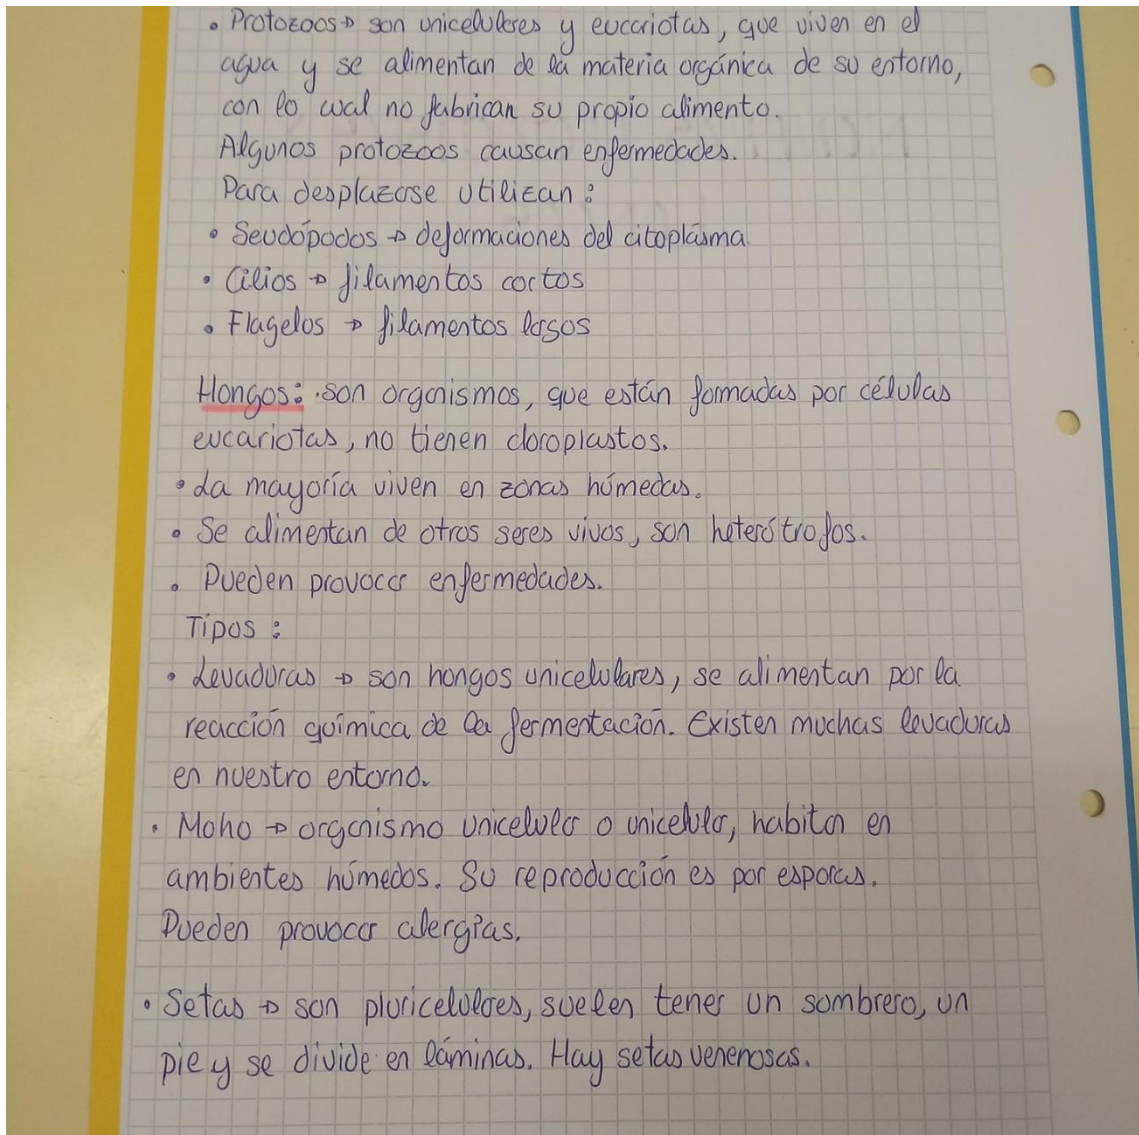 • Protozoos → son unicelulares y eucariotas, que viven en el
agua y se alimentan de la materia orgánica de su entorno,
con lo cual no fabrican su propio alimento.
Algunos protozoos causan enfermedades.
Para desplazarse utilizan:
• Seudópodos → deformaciones del citoplásma
• Cilios → filamentos cortos
• Flagelos → filamentos largos
Hongos: son organismos, que están formadas por células
eucariotas, no tienen cloroplastos.
• La mayoría viven en zonas húmedas.
• Se alimentan de otros seres vivos, son heterótrofos.
• Pueden provocar enfermedades.
Tipos:
• Levaduras → son hongos unicelulares, se alimentan por la
reacción química de la fermentación. Existen muchas levaduras
en nuestro entorno.
• Moho → organismo unicelular o unicelular, habitan en
ambientes húmedos. Su reproducción es por esporas.
Pueden provocar alergias.
• Setas → son pluricelulares, suelen tener un sombrero, un
pie y se divide en láminas. Hay setas venenosas.